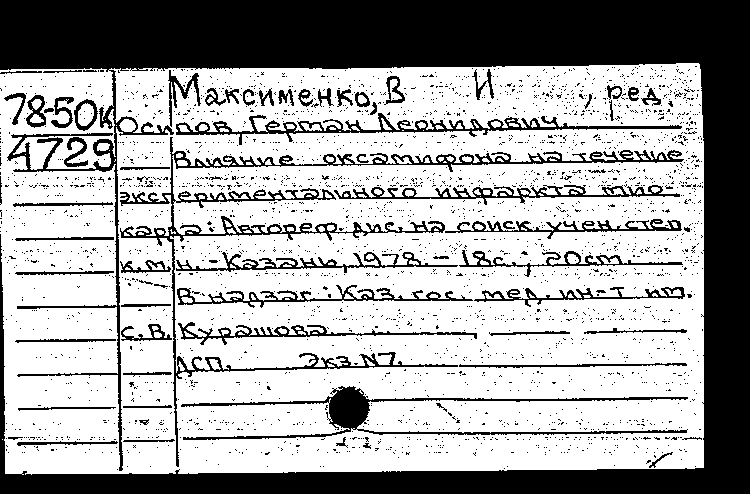 Максименко, В И , ред.
78-50к Осипов, Герман Леонидович.
4729 Влияние оксамифона на течение
экспериментального инфаркта мио-
карда: Автореф. дис. на соиск. учен. степ.
к.м.н. - Казань, 1978. - 18с.; 20см.
В надзаг: Каз. гос. мед. ин-т им.
С. В. Курашова.
ДСП. Экз. N7.